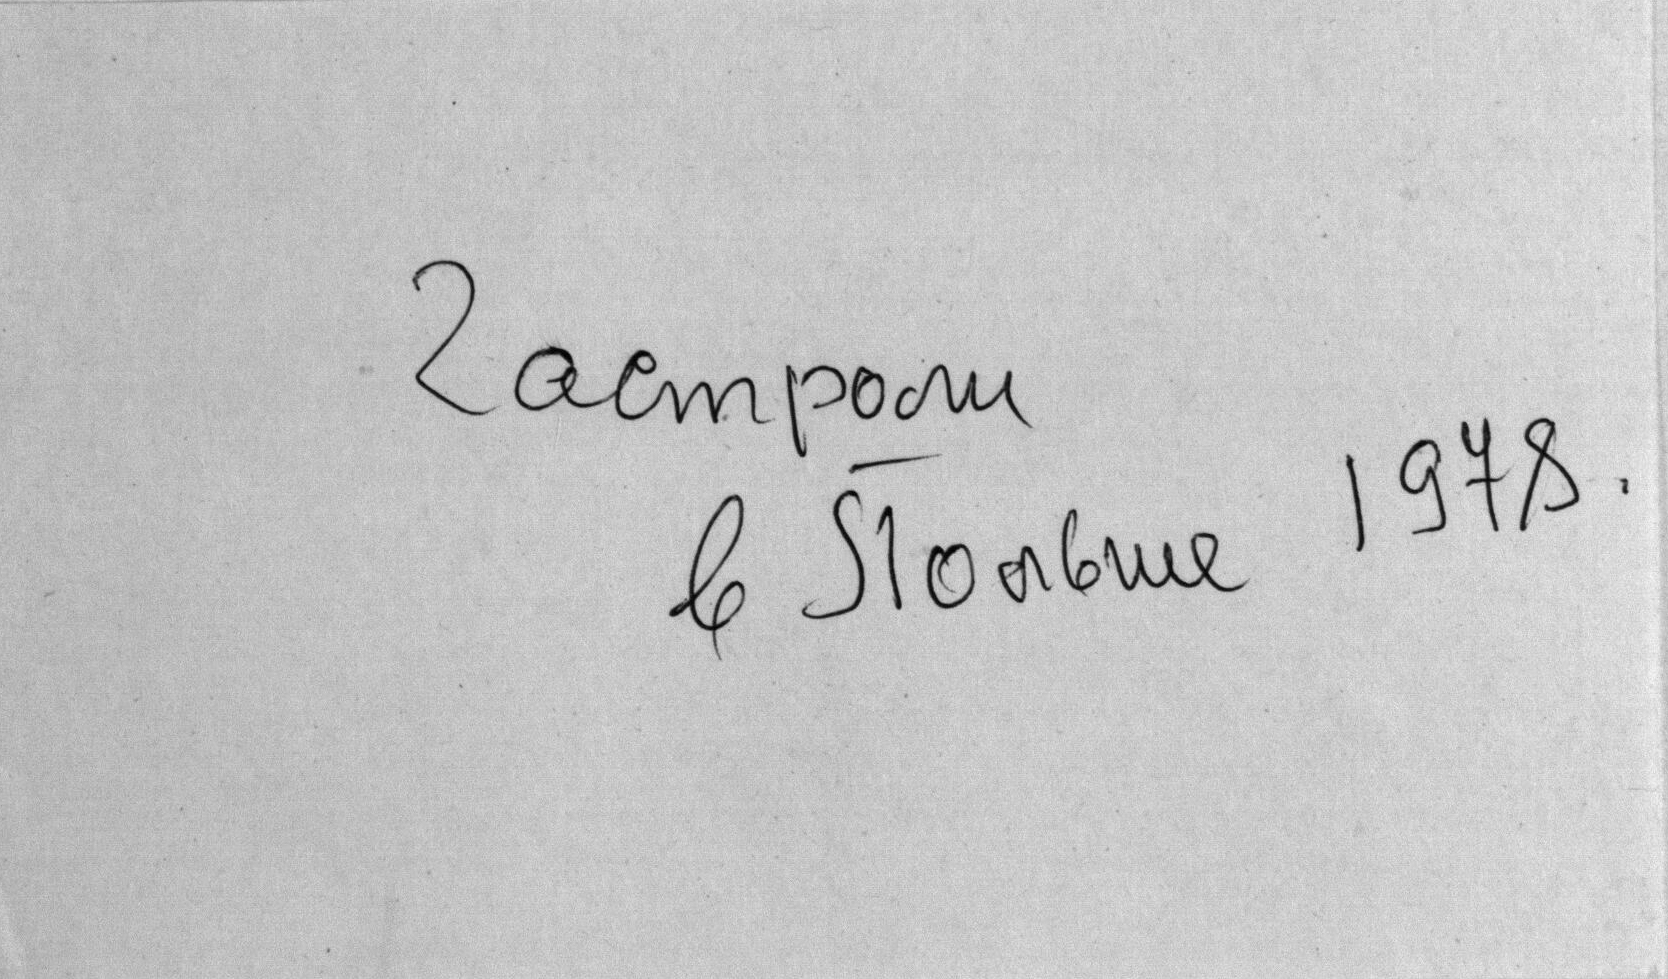 Гастроли
в Польше 1978.